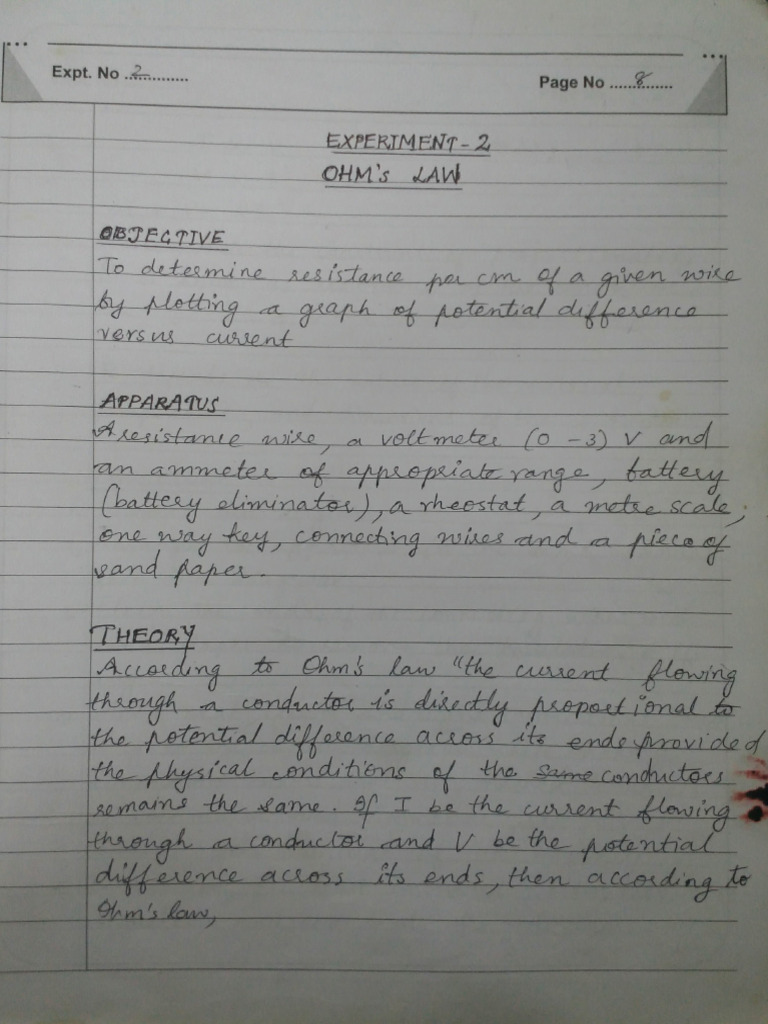 Expt. No ..2............
Page No ......8........
EXPERIMENT-2
OHM's LAW
OBJECTIVE
To determine resistance per cm of a given wire
by plotting a graph of potential difference
versus current
APPARATUS
A resistance wire, a voltmeter (0-3) V and
an ammeter of appropriate range, battery
(battery eliminator), a rheostat, a metre scale,
one way key, connecting wires and a piece of
sand paper.
THEORY
According to Ohm's law "the current flowing
through a conductor is directly proportional to
the potential difference across its ends provided
the physical conditions of the same conductors
remains the same. If I be the current flowing
through a conductor and V be the potential
difference across its ends, then according to
Ohm's law,